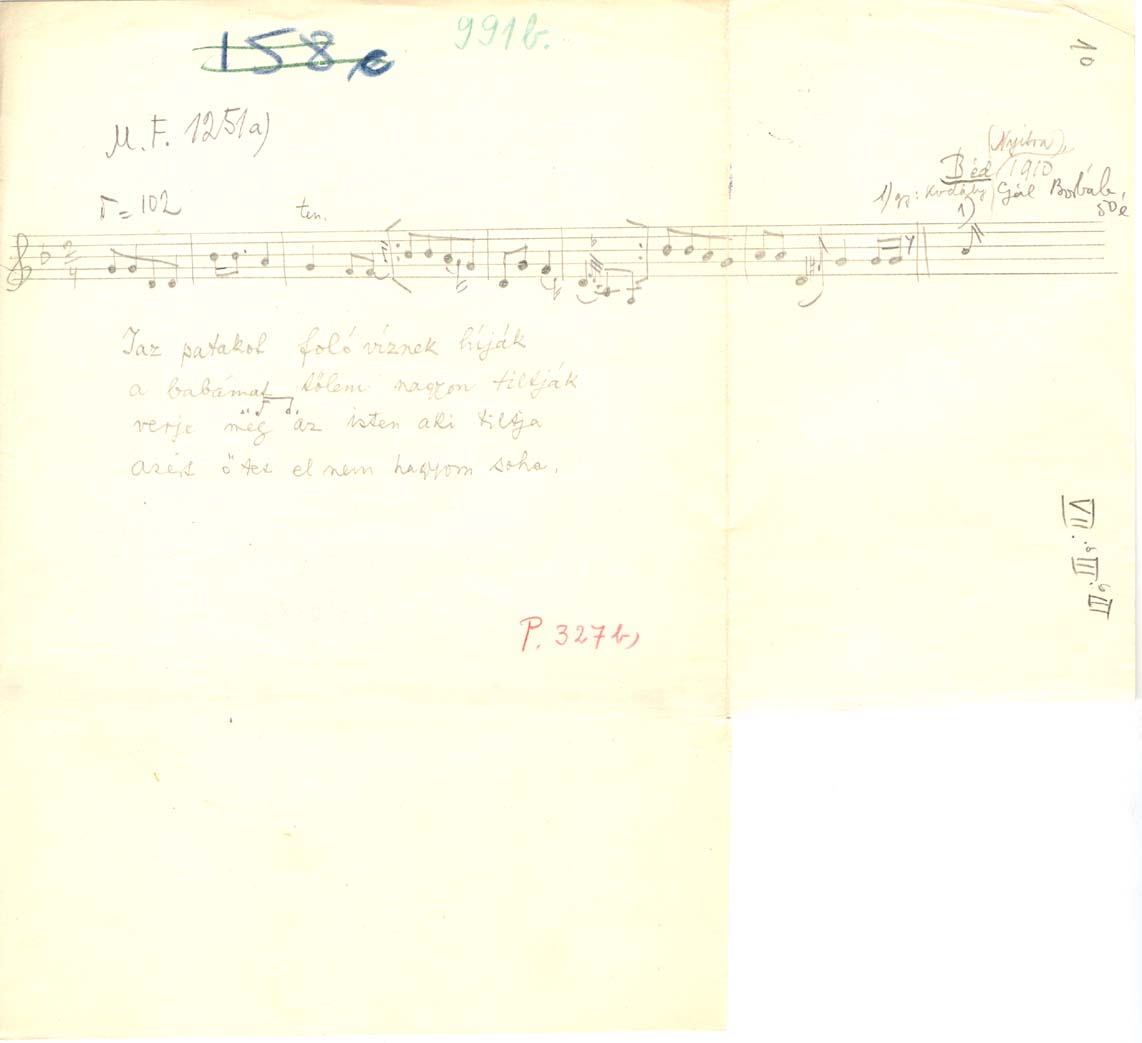 158 c
991b.
10
M. F. 1251a)
(Nyitra)
Béd 1910
1) gy: Kodály Gál Borbála,
50 é
= 102
ten.
1)
2
4
Iaz patakot foló víznek híják
a babámat tőlem nagyon tiltják
verje meg az isten aki tiltja
azért ötet el nem hagyom soha.
VII. III. III
P. 327b)